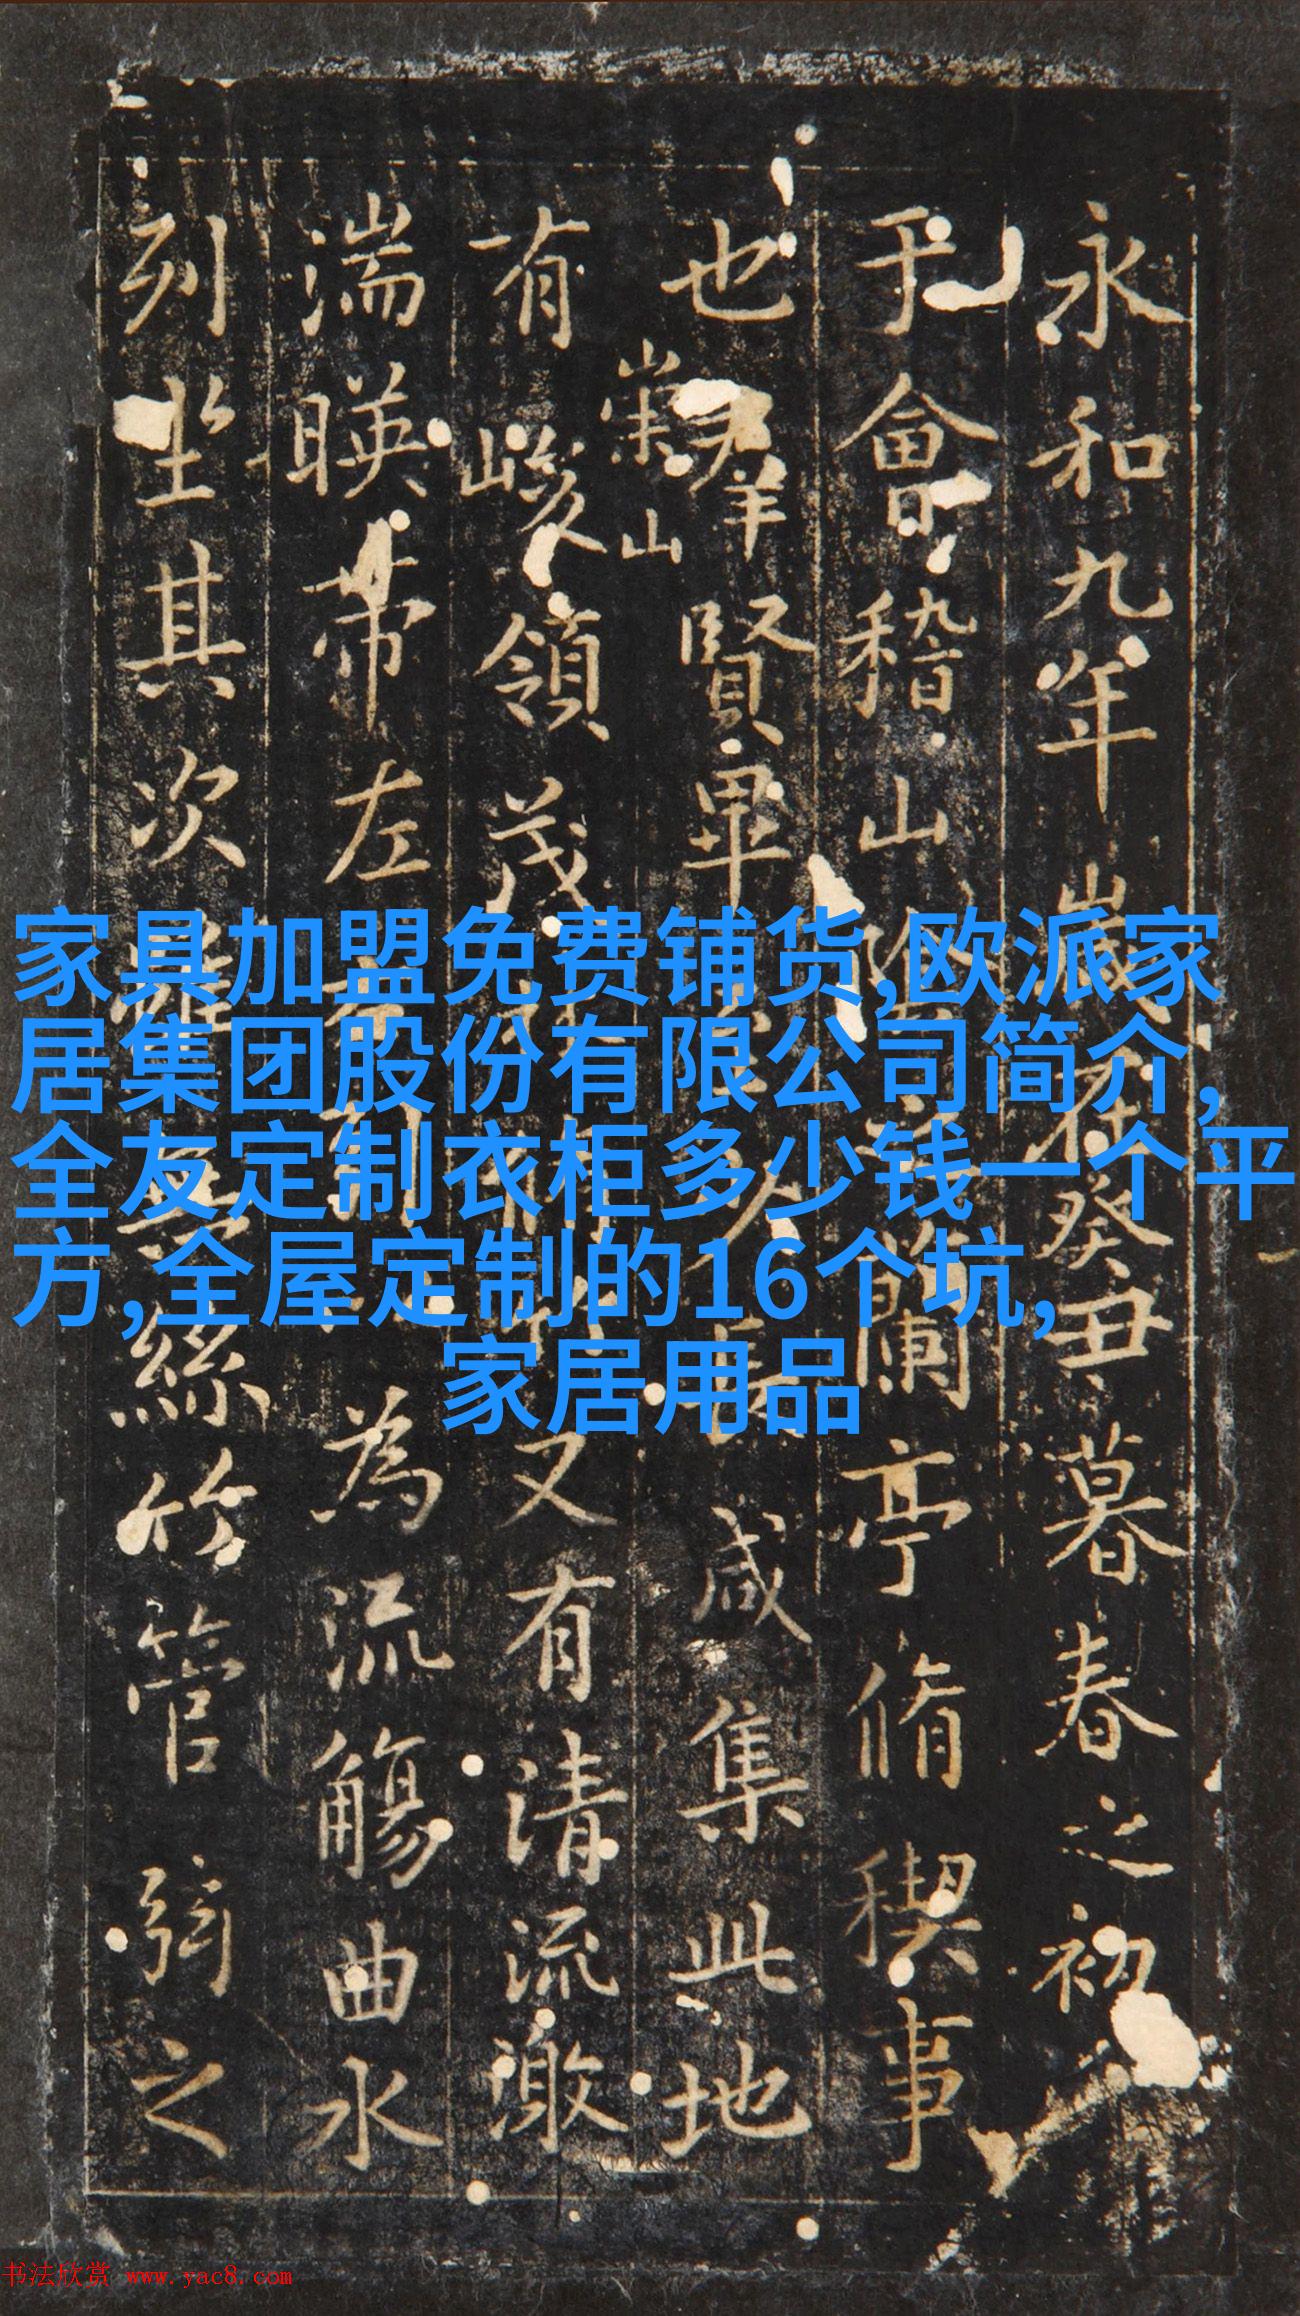 永和九年歲在癸丑暮春之初
于會稽山陰之蘭亭脩稧事
也羣賢畢至少長咸集此地
崇山
有峻領茂林脩竹又有清流激
湍暎帶左右引以為流觴曲水
列坐其次雖無絲竹管弦之
家具加盟免费铺货,欧派家
居集团股份有限公司简介,
全友定制衣柜多少钱一个平
方,全屋定制的16个坑,
家居用品
书法欣赏 www.yac8.com